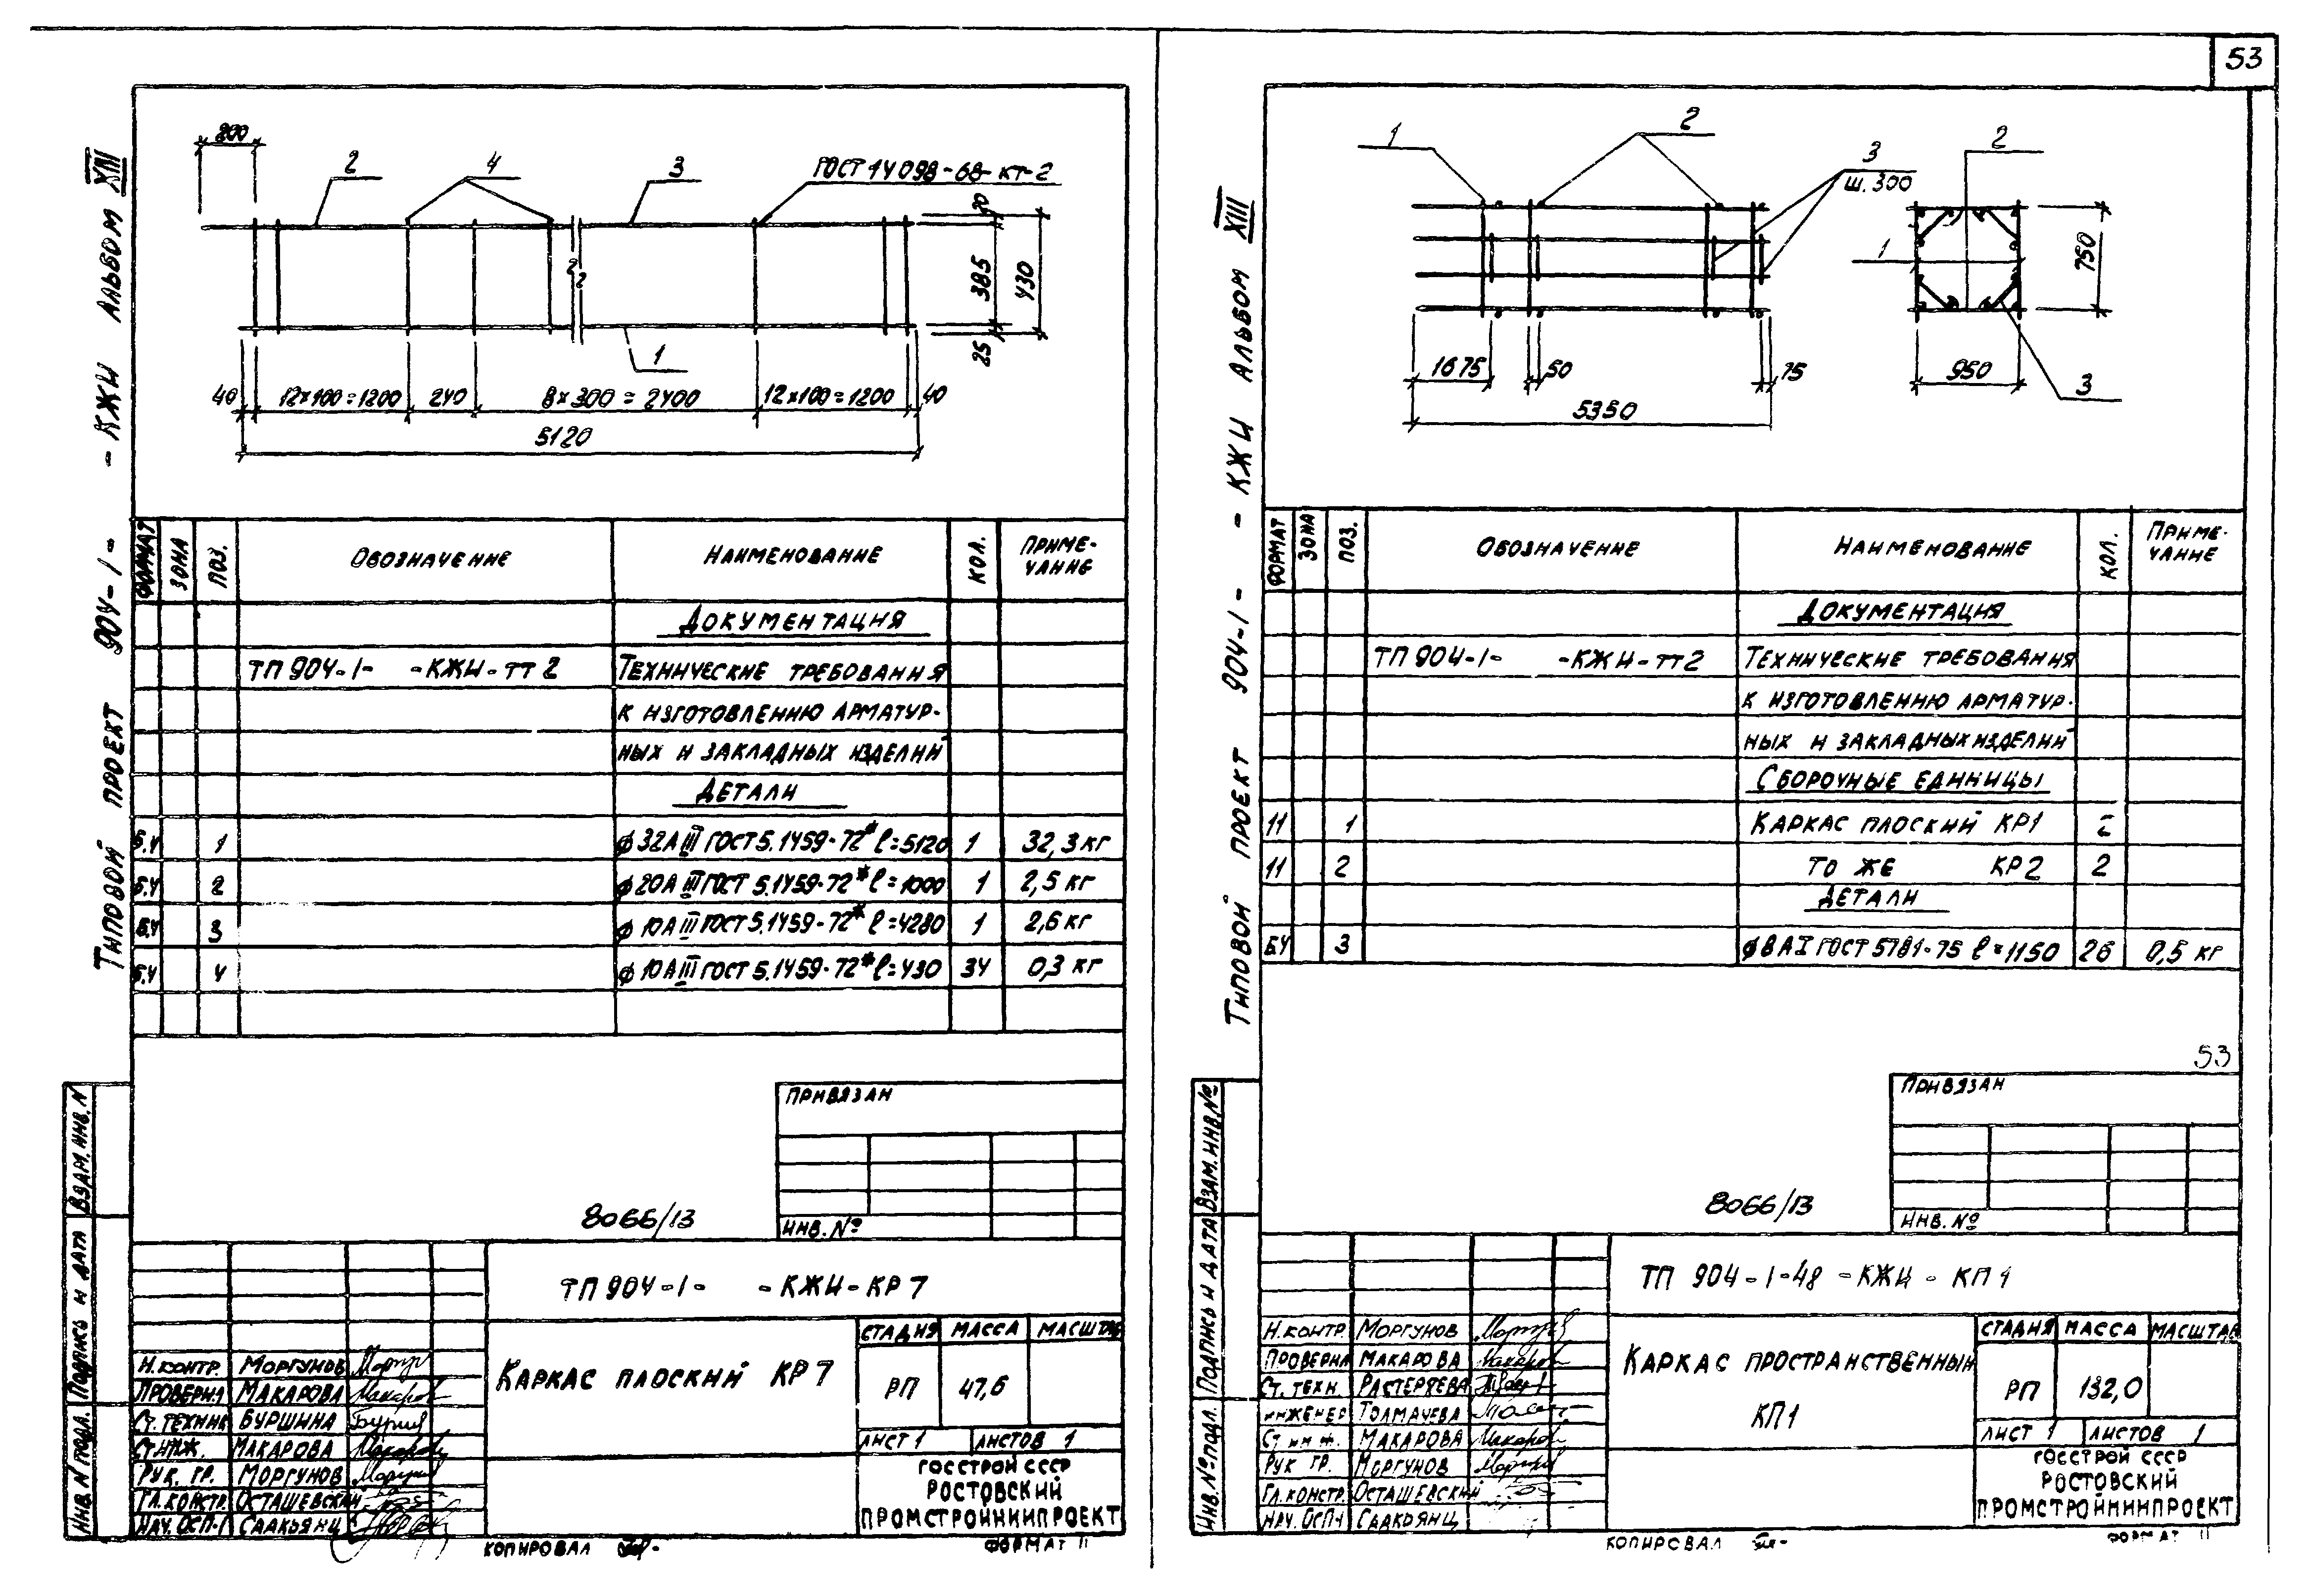 53
Типовой проект 904-1- -КЖИ Альбом XIII
200
2
4
3
ГОСТ 14098-68-КТ-2
20
385
430
25
1
40
12×100=1200
240
8×300=2400
12×100=1200
40
5120
Формат
Зона
Поз.
Обозначение
Наименование
Кол.
Приме-
чание
Документация
ТП 904-1- -КЖИ-ТТ2 Технические требования
к изготовлению арматур-
ных и закладных изделий
Детали
Б.Ч 1 ф32АIII ГОСТ 5.1459-72* ℓ=5120 1 32,3 кг
Б.Ч 2 ф20АIII ГОСТ 5.1459-72* ℓ=1000 1 2,5 кг
Б.Ч 3 ф10АIII ГОСТ 5.1459-72* ℓ=4280 1 2,6 кг
Б.Ч 4 ф10АIII ГОСТ 5.1459-72* ℓ=430 34 0,3 кг
Привязан
Инв. №
8066/13
Взам. инв. N
Подпись и дата
Инв. N подл.
ТП 904-1- -КЖИ-КР7
Каркас плоский КР7
Стадия Масса Масштаб
РП 47,6
Лист 1 Листов 1
Госстрой СССР
Ростовский
Промстройниипроект
Н.контр. Моргунов
Проверил Макарова
Ст.техник Буршина
Ст.инж. Макарова
Рук. гр. Моргунов
Гл.констр. Осташевский
Нач. ОСП-1 Саакьянц
Копировал
Формат 11
Типовой проект 904-1- -КЖИ Альбом XIII
1
2
3
ш.300
2
1
750
3
1675
50
75
5350
950
Формат
Зона
Поз.
Обозначение
Наименование
Кол.
Приме-
чание
Документация
ТП 904-1- -КЖИ-ТТ2 Технические требования
к изготовлению арматур-
ных и закладных изделий
Сборочные единицы
11 1 Каркас плоский КР1 2
11 2 То же КР2 2
Детали
БЧ 3 ф8АI ГОСТ 5781-75 ℓ=1150 26 0,5 кг
53
Привязан
Инв. №
8066/13
Взам. инв. №
Подпись и дата
Инв. № подл.
ТП 904-1-48-КЖИ-КП1
Каркас пространственный
КП1
Стадия Масса Масштаб
РП 132,0
Лист 1 Листов 1
Госстрой СССР
Ростовский
Промстройниипроект
Н.контр. Моргунов
Проверил Макарова
Ст. техн. Растеряева
Инженер Толмачева
Ст инж. Макарова
Рук гр. Моргунов
Гл.констр. Осташевский
Нач. ОСП-1 Саакьянц
Копировал
Формат 11